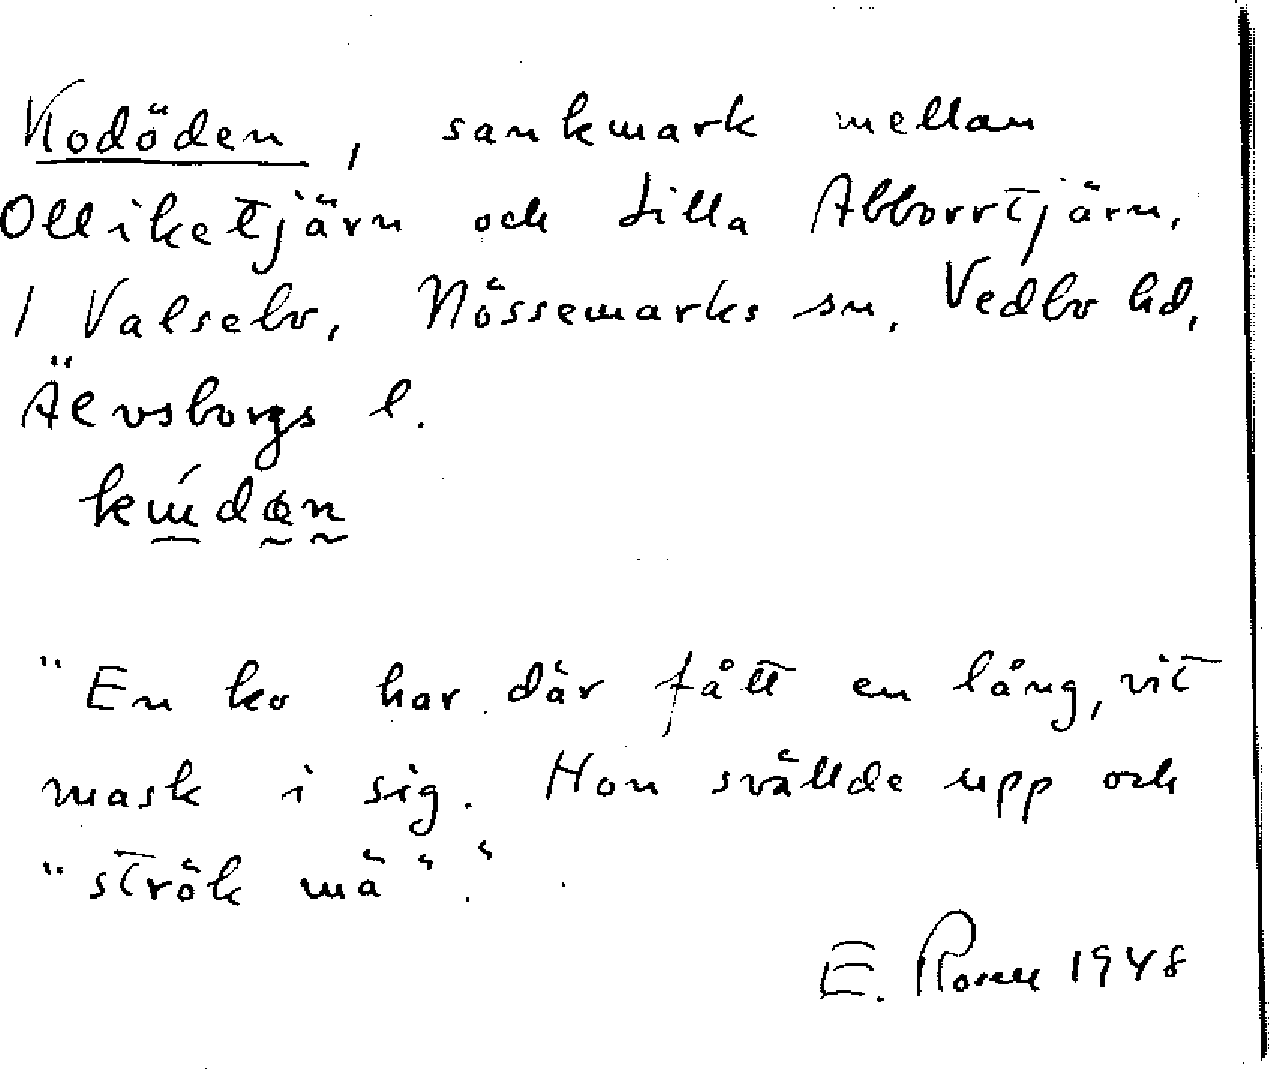 Kodöden, sankmark mellan
Olliketjärn och Lilla Abborrtjärn,
i Valsebo, Nössemarks sn, Vedbo hd,
Älvsborgs l.
"En ko har där fått en lång, vit
mask i sig. Hon svällde upp och
"strök mä"".
E. Rosen 1948